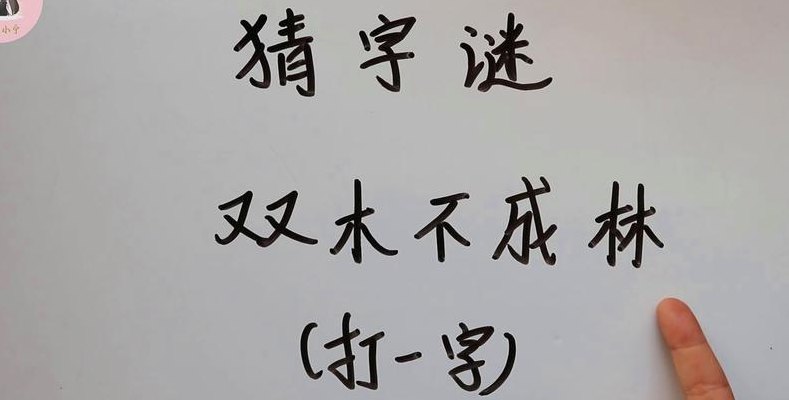 小中
猜字谜
双木不成林
(打一字)